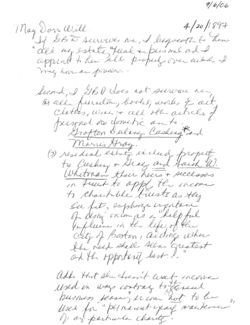 9/6/06
May Dorr Will
4/20/1894
If GBD survives me, I bequeath to him
all my estate, real & personal and I
appoint to him all property over which I
may have a power.
Second, if GBD does not survive me,
(1) all furniture, books, works of art,
clothes, wine & all other articles of
personal or domestic use to
Grafton Cushing and
Marie Gray.
(2) residual estate, incl. property
to Cushing & Gray and
Whitman their heirs & successors
in trust to apply the income
to charitable trusts as they
see fit, explore
of doing as a helpful
influence in the life of the
City of Boston, aiding where
the need shall seem greatest
and the opportunity best."
Adds that she doesn't want income
used in way contrary to
business sense, or can not to be
used for "permanent
of any particular charity."